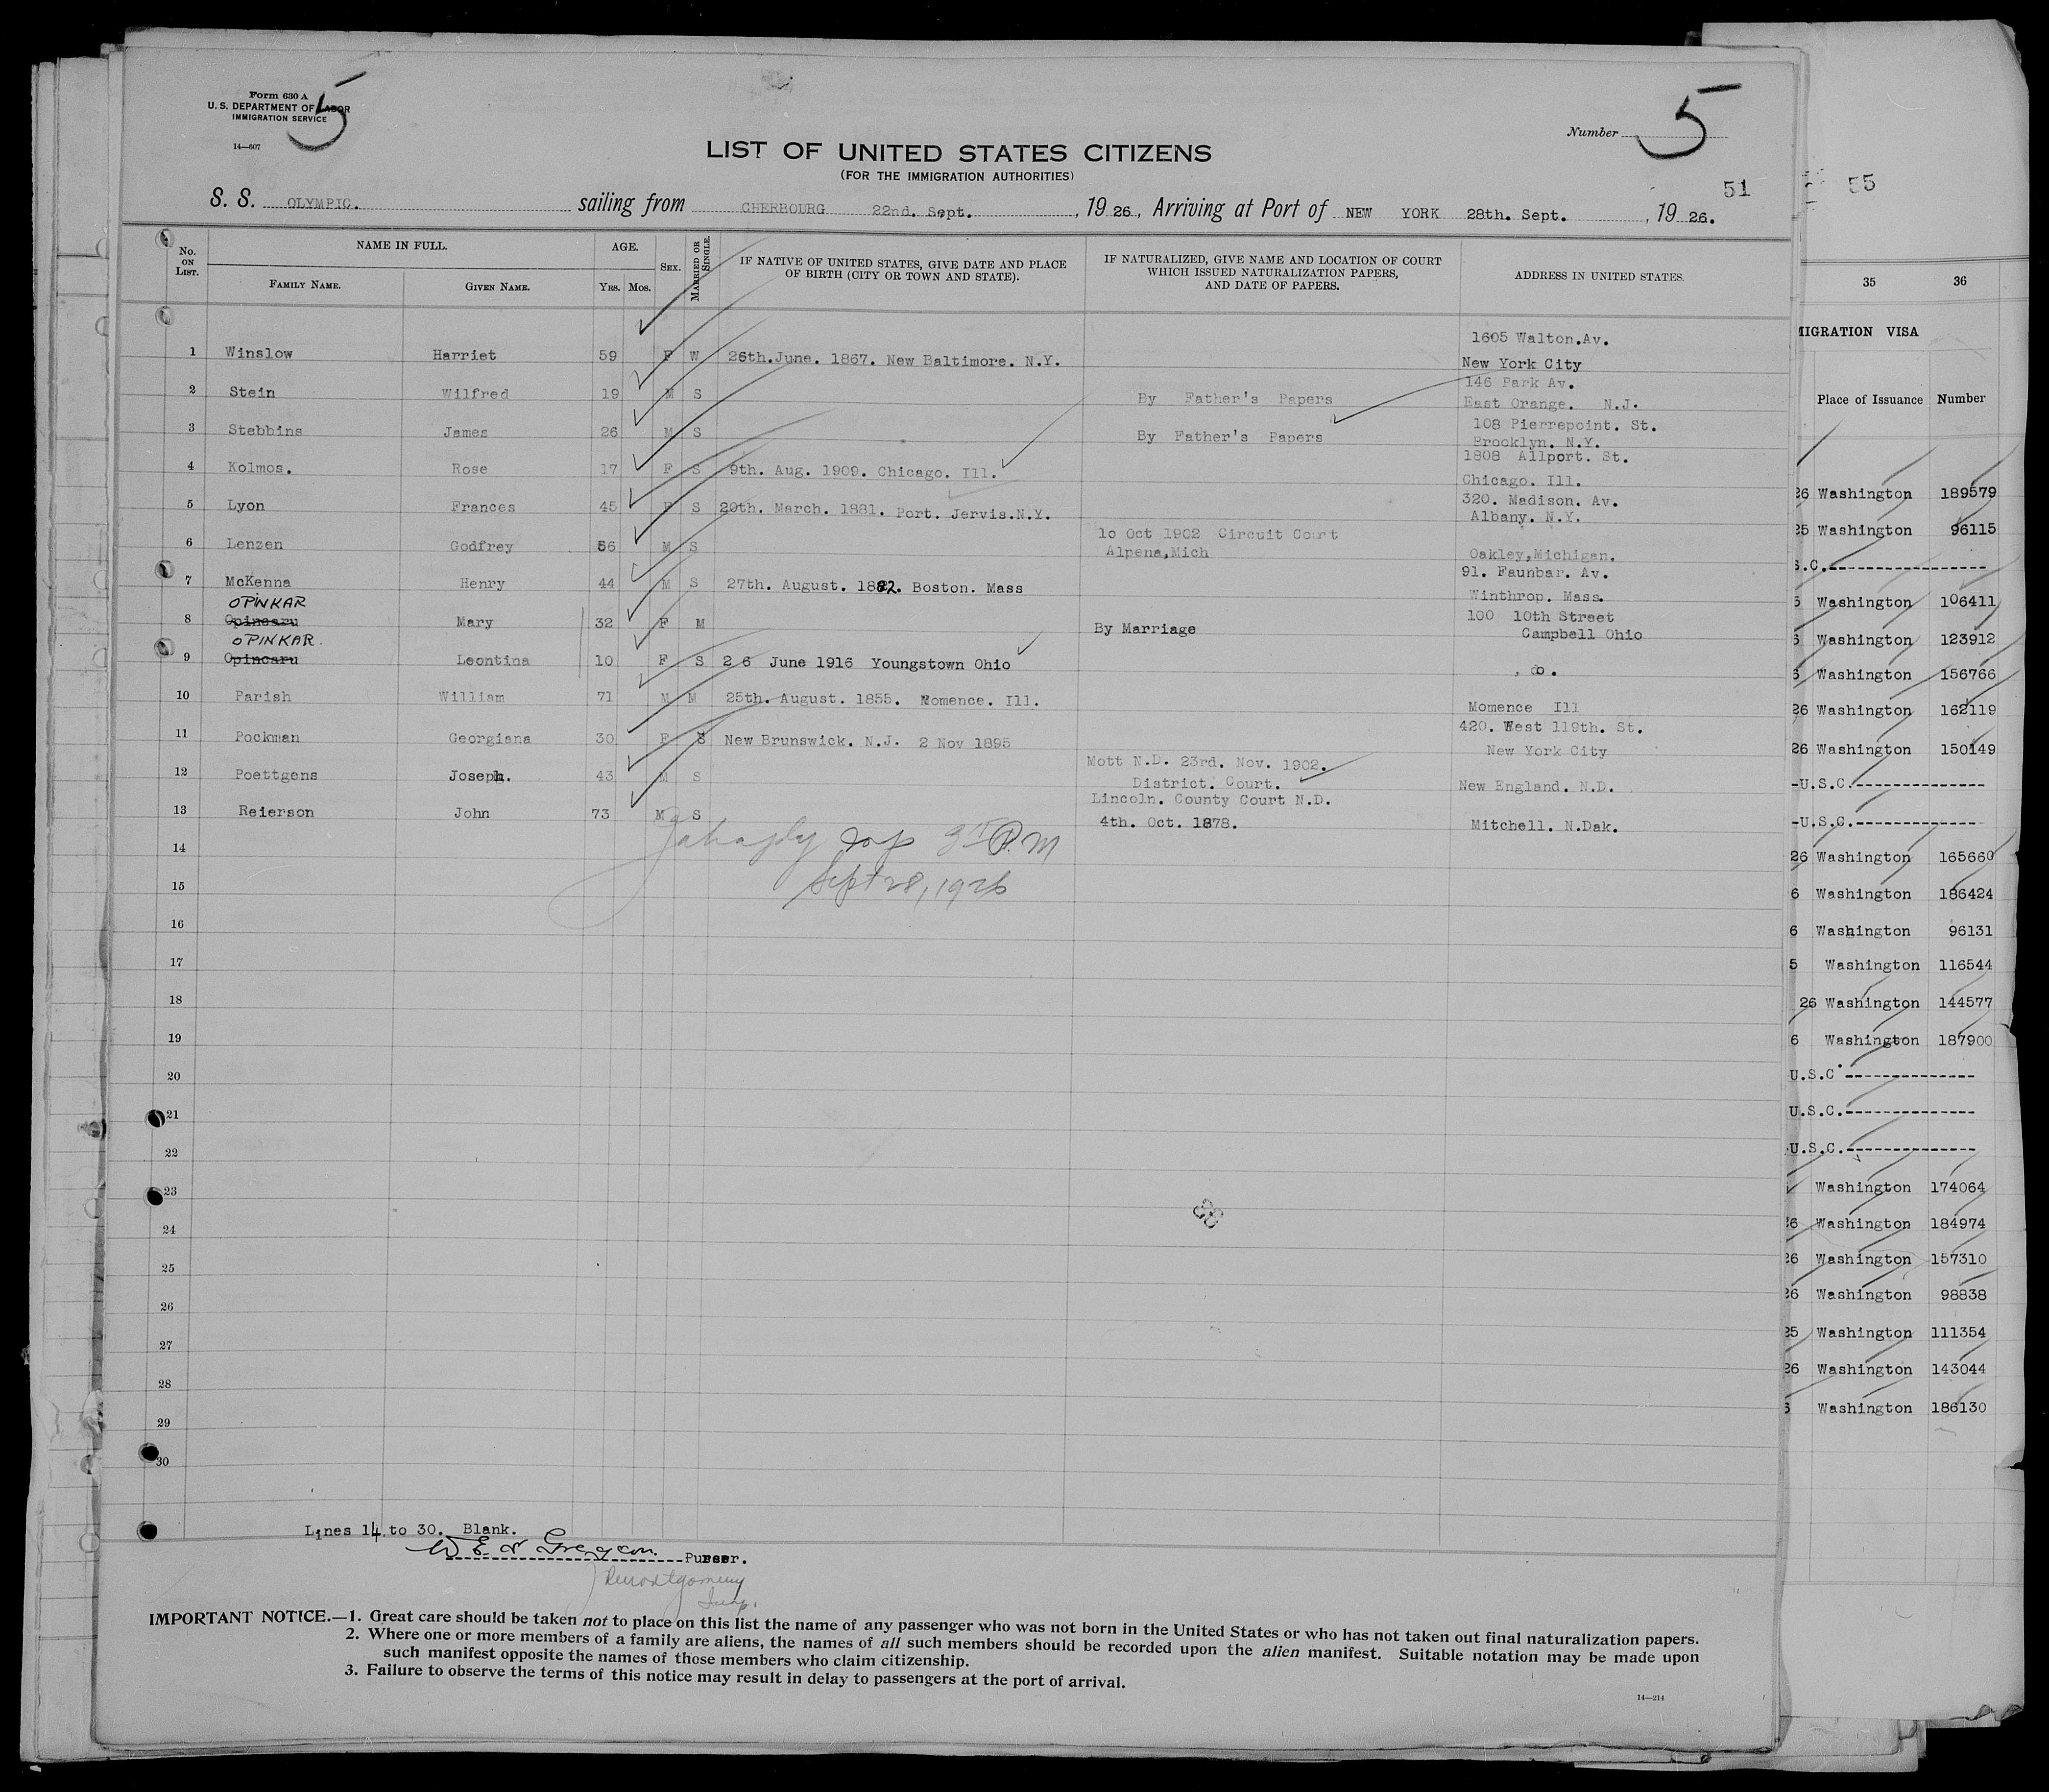 Form 630 A
U. S. DEPARTMENT OF LABOR
IMMIGRATION SERVICE
14—607
5
Number 5
LIST OF UNITED STATES CITIZENS
(FOR THE IMMIGRATION AUTHORITIES)
51
S. S. OLYMPIC. sailing from CHERBOURG 22nd. Sept. , 19 26, Arriving at Port of NEW YORK 28th. Sept. , 19 26.
No. ON LIST. NAME IN FULL. FAMILY NAME. GIVEN NAME. AGE. YRS. MOS. SEX. MARRIED OR SINGLE. IF NATIVE OF UNITED STATES, GIVE DATE AND PLACE OF BIRTH (CITY OR TOWN AND STATE). IF NATURALIZED, GIVE NAME AND LOCATION OF COURT WHICH ISSUED NATURALIZATION PAPERS, AND DATE OF PAPERS. ADDRESS IN UNITED STATES.
1 Winslow Harriet 59 F W 26th.June. 1867. New Baltimore. N.Y. 1605 Walton.Av. New York City
2 Stein Wilfred 19 M S By Father's Papers 146 Park Av. East Orange. N.J.
3 Stebbins James 26 M S By Father's Papers 108 Pierrepoint. St. Brooklyn. N.Y.
4 Kolmos. Rose 17 F S 9th. Aug. 1909. Chicago. Ill. 1808 Allport. St. Chicago. Ill.
5 Lyon Frances 45 F S 20th. March. 1881. Port. Jervis.N.Y. 320. Madison. Av. Albany. N.Y.
6 Lenzen Godfrey 56 M S 10 Oct 1902 Circuit Court Alpena,Mich Oakley,Michigan.
7 McKenna Henry 44 M S 27th. August. 1882. Boston. Mass 91. Faunbar. Av. Winthrop. Mass.
OPINKAR
8 Opincaru Mary 32 F M By Marriage 100 10th Street Campbell Ohio
OPINKAR.
9 Opincaru Leontina 10 F S 26 June 1916 Youngstown Ohio , do.
10 Parish William 71 M M 25th. August. 1855. Momence. Ill. Momence Ill
11 Pockman Georgiana 30 F S New Brunswick. N.J. 2 Nov 1895 420. West 119th. St. New York City
12 Poettgens Joseph. 43 M S Mott N.D. 23rd. Nov. 1902. District. Court. New England. N.D.
13 Reierson John 73 M S Lincoln. County Court N.D. 4th. Oct. 1878. Mitchell. N.Dak.
14
P.M
15
Sept 28, 1926
16
17
18
19
20
21
22
23
24
25
26
27
28
29
30
Lines 14 to 30. Blank.
Purser.
Montgomery
Insp.
IMPORTANT NOTICE.—1. Great care should be taken not to place on this list the name of any passenger who was not born in the United States or who has not taken out final naturalization papers.
2. Where one or more members of a family are aliens, the names of all such members should be recorded upon the alien manifest. Suitable notation may be made upon
such manifest opposite the names of those members who claim citizenship.
3. Failure to observe the terms of this notice may result in delay to passengers at the port of arrival.
14—214
55
35 36
MIGRATION VISA
Place of Issuance Number
26 Washington 189579
25 Washington 96115
S.C.
5 Washington 106411
6 Washington 123912
6 Washington 156766
26 Washington 162119
26 Washington 150149
-U.S.C.
-U.S.C.
26 Washington 165660
6 Washington 186424
6 Washington 96131
5 Washington 116544
26 Washington 144577
6 Washington 187900
U.S.C
U.S.C.
U.S.C.
Washington 174064
26 Washington 184974
26 Washington 157310
26 Washington 98838
25 Washington 111354
26 Washington 143044
6 Washington 186130